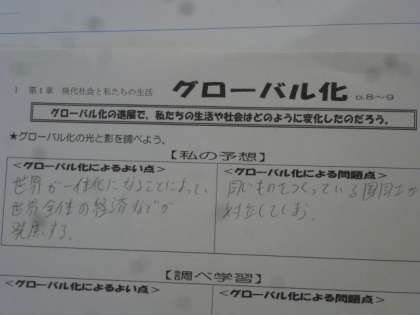 1 第1章 現代社会と私たちの生活 グローバル化 p.8~9
グローバル化の進展で、私たちの生活や社会はどのように変化したのだろう。
★グローバル化の光と影を調べよう。
【私の予想】
<グローバル化によるよい点>
世界が一体化になることによって、
世界全体の経済などが
発展する。
<グローバル化による問題点>
同じものをつくっている国同士が
対立してしまう。
【調べ学習】
<グローバル化によるよい点>
<グローバル化による問題点>